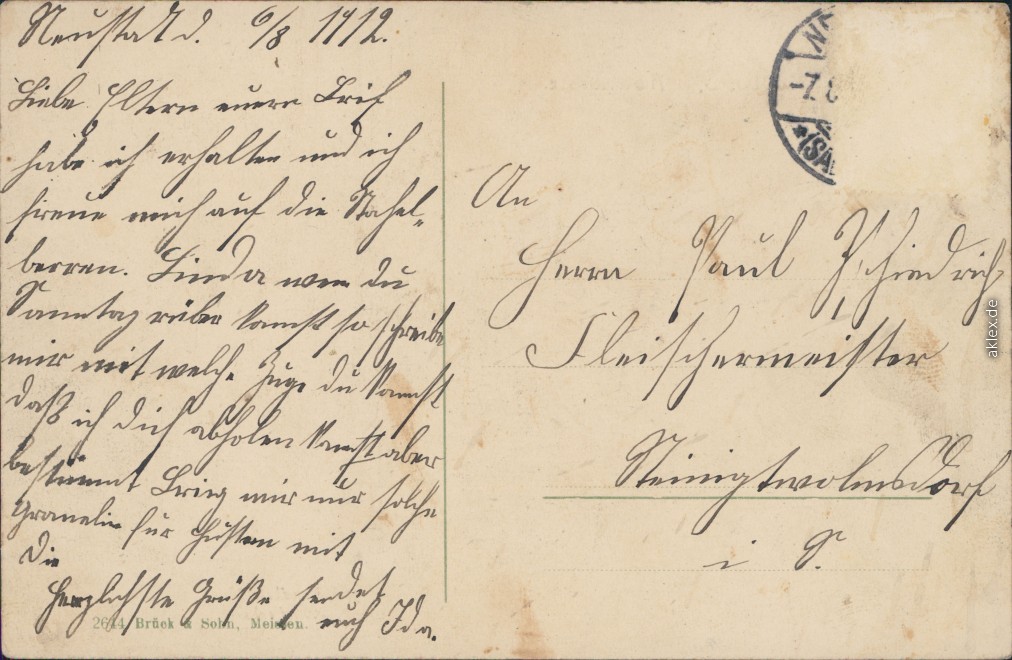 Neustadt d. 6/8 1912.
Liebe Eltern euern Brif
habe ich erhalten und ich
freue mich auf die Stachel-
berren. Linda wen du
Sonntag rüber kamst so schreibe
mir mit welche Zuge du kamst
daß ich dich abholen kamst aber
bestimmt Brieg mir nur solche
für Husten mit
Die
Herzlichste Grüße sendet
euch Ida.
2644 Brück & Sohn, Meissen.
-7. 8
An
Herrn Paul Zschiedrich
Fleischermeister
Steinigtwolmsdorf
i S.
aklex.de